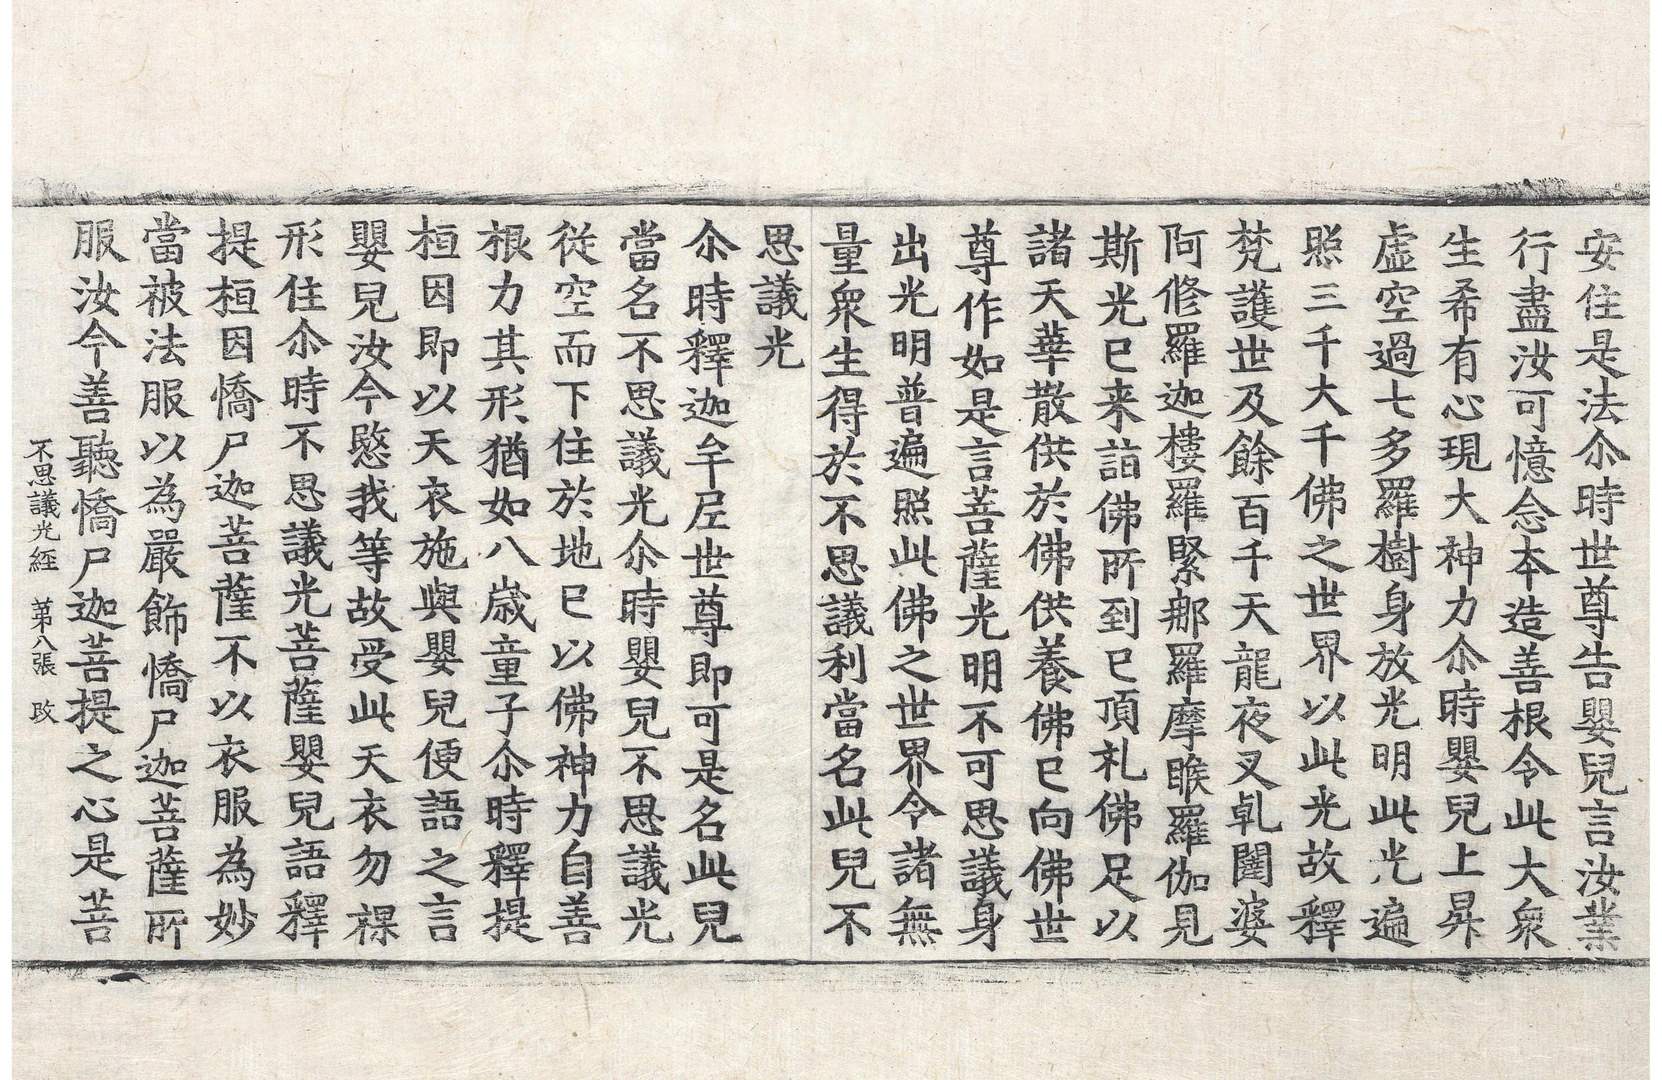 安住是法尒時世尊告嬰兒言汝業
行盡汝可憶念本造善根令此大衆
生希有心現大神力尒時嬰兒上昇
虛空過七多羅樹身放光明此光遍
照三千大千佛之世界以此光故釋
梵護世及餘百千天龍夜叉乹闥婆
阿修羅迦樓羅緊那羅摩睺羅伽見
斯光已来詣佛所到已頂礼佛足以
諸天華散供於佛供養佛已向佛世
尊作如是言菩薩光明不可思議身
出光明普遍照此佛之世界令諸無
量衆生得於不思議利當名此兒不
思議光
尒時釋迦牟尼世尊即可是名此兒
當名不思議光尒時嬰兒不思議光
從空而下住於地已以佛神力自善
根力其形猶如八歳童子尒時釋提
桓因即以天衣施與嬰兒便語之言
嬰兒汝今愍我等故受此天衣勿裸
形住尒時不思議光菩薩嬰兒語釋
提桓因憍尸迦菩薩不以衣服為妙
當被法服以為嚴飾憍尸迦菩薩所
服汝今善聽憍尸迦菩提之心是菩
不思議光経 第八張 改